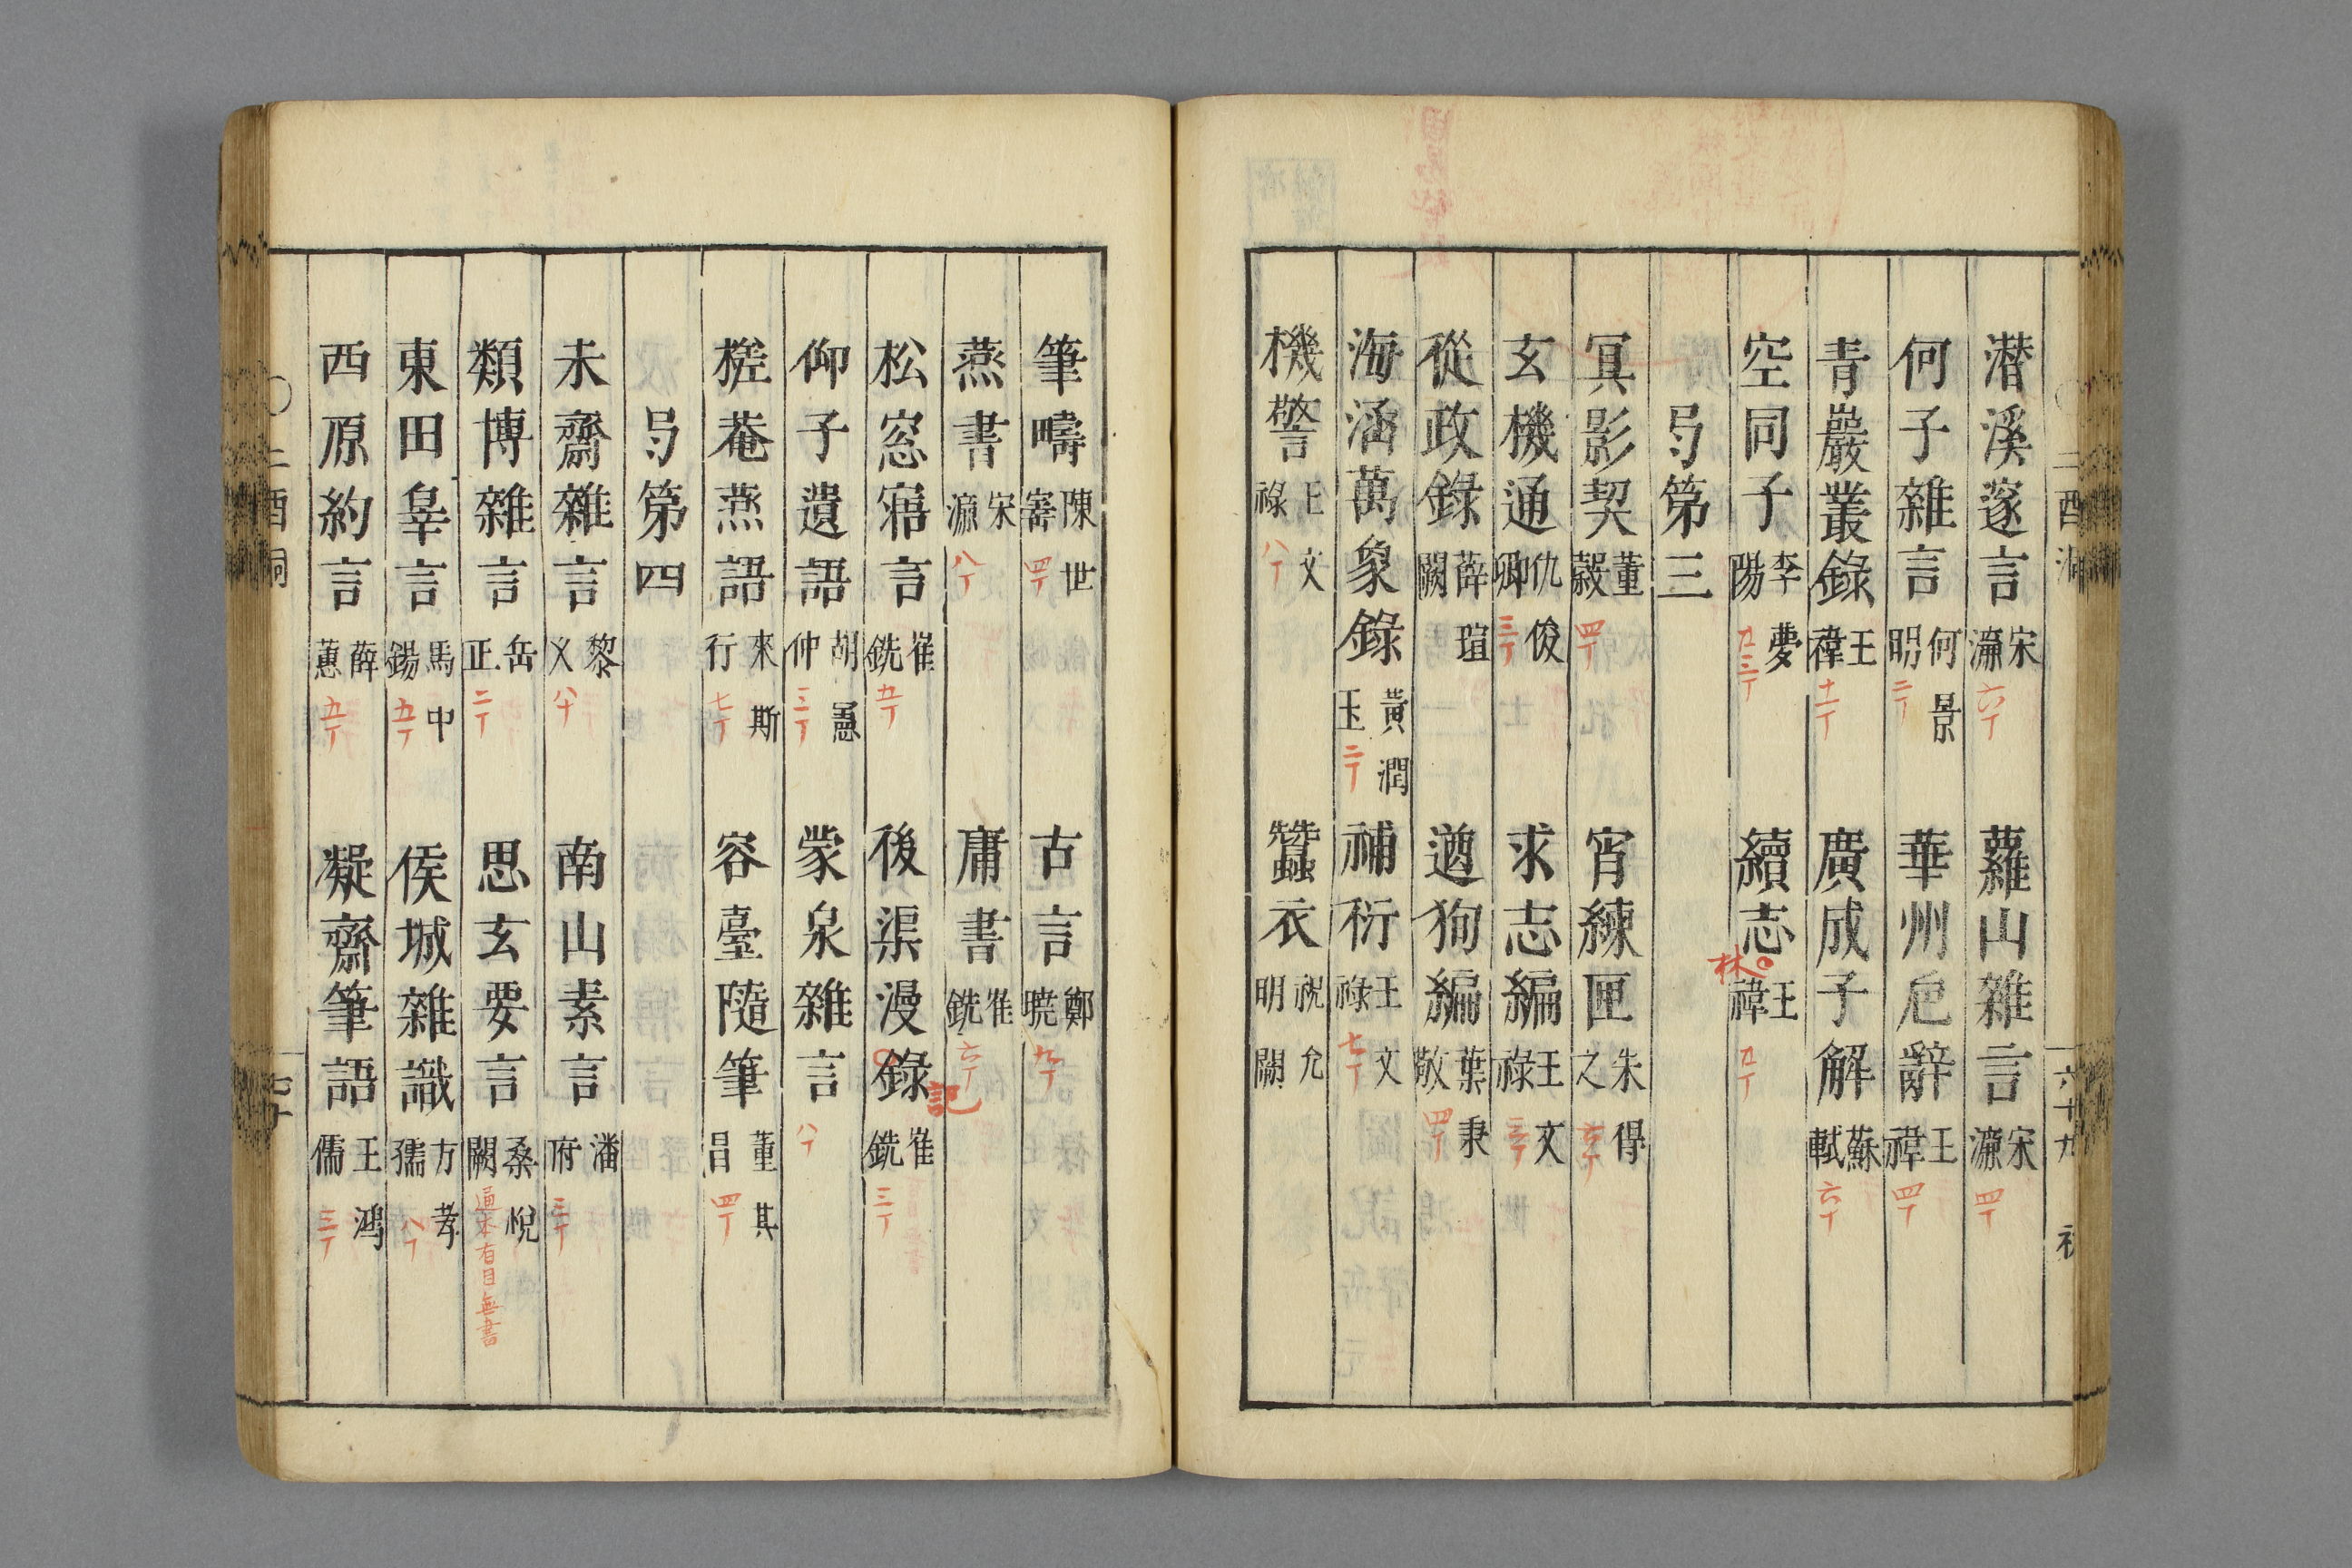 潜溪邃言 宋濂 六丁 蘿山雜言 宋濂 四丁
何子雜言 何景明 二丁 華州巵辭 王禕 四丁
青巖叢錄 王禕 十一丁 廣成子解 蘇軾 六丁
空同子 李夢陽 九三丁 續志林 王禕 九丁
弓第三
冥影契 董縠 四丁 宵練匣 朱得之 六丁
玄機通 仇俊卿 三丁 求志編 王文祿 三丁
從政錄 薛瑄 闕 遒狥編 葉秉敬 四丁
海涵萬象錄 黃潤玉 二丁 補衍 王文祿 七丁
機警 王文祿 八丁 蠶衣 祝允明 闕
二酉洞 六十九
筆疇 陳世寳 四丁 古言 鄭曉 九丁
燕書 宋濂 八丁 庸書 崔銑 六丁
松窓寤言 崔銑 五丁 後渠漫錄 記 崔銑 三丁
仰子遺語 胡憲仲 三丁 蒙泉雜言 八丁
槎菴燕語 來斯行 七丁 容臺隨筆 董其昌 四丁
弓第四
未齋雜言 黎乂 八丁 南山素言 潘府 三丁
類博雜言 岳正 二丁 思玄要言 桑悅 闕 逼本有目無書
東田皐言 馬中錫 五丁 侯城雜識 方孝孺 八丁
西原約言 薛蕙 五丁 凝齋筆語 王鴻儒 三丁
二酉洞 七十